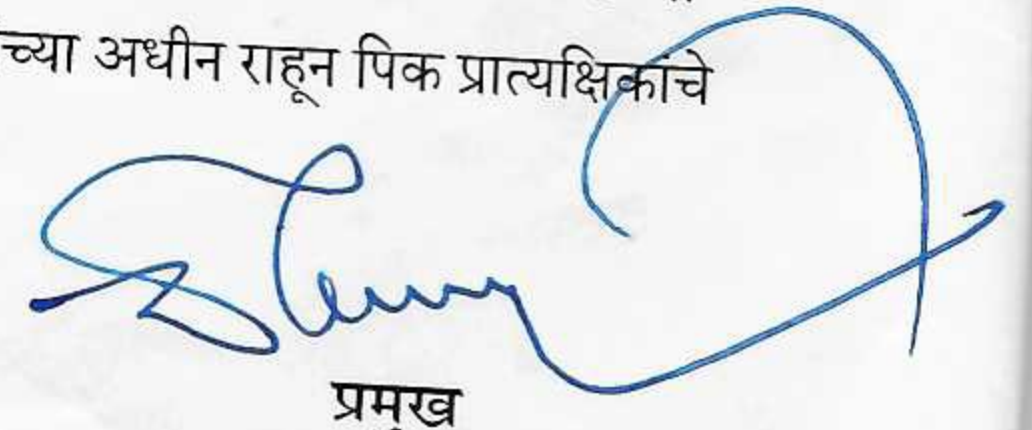 च्या अधीन राहून पिक प्रात्यक्षिकांचे
प्रमुख